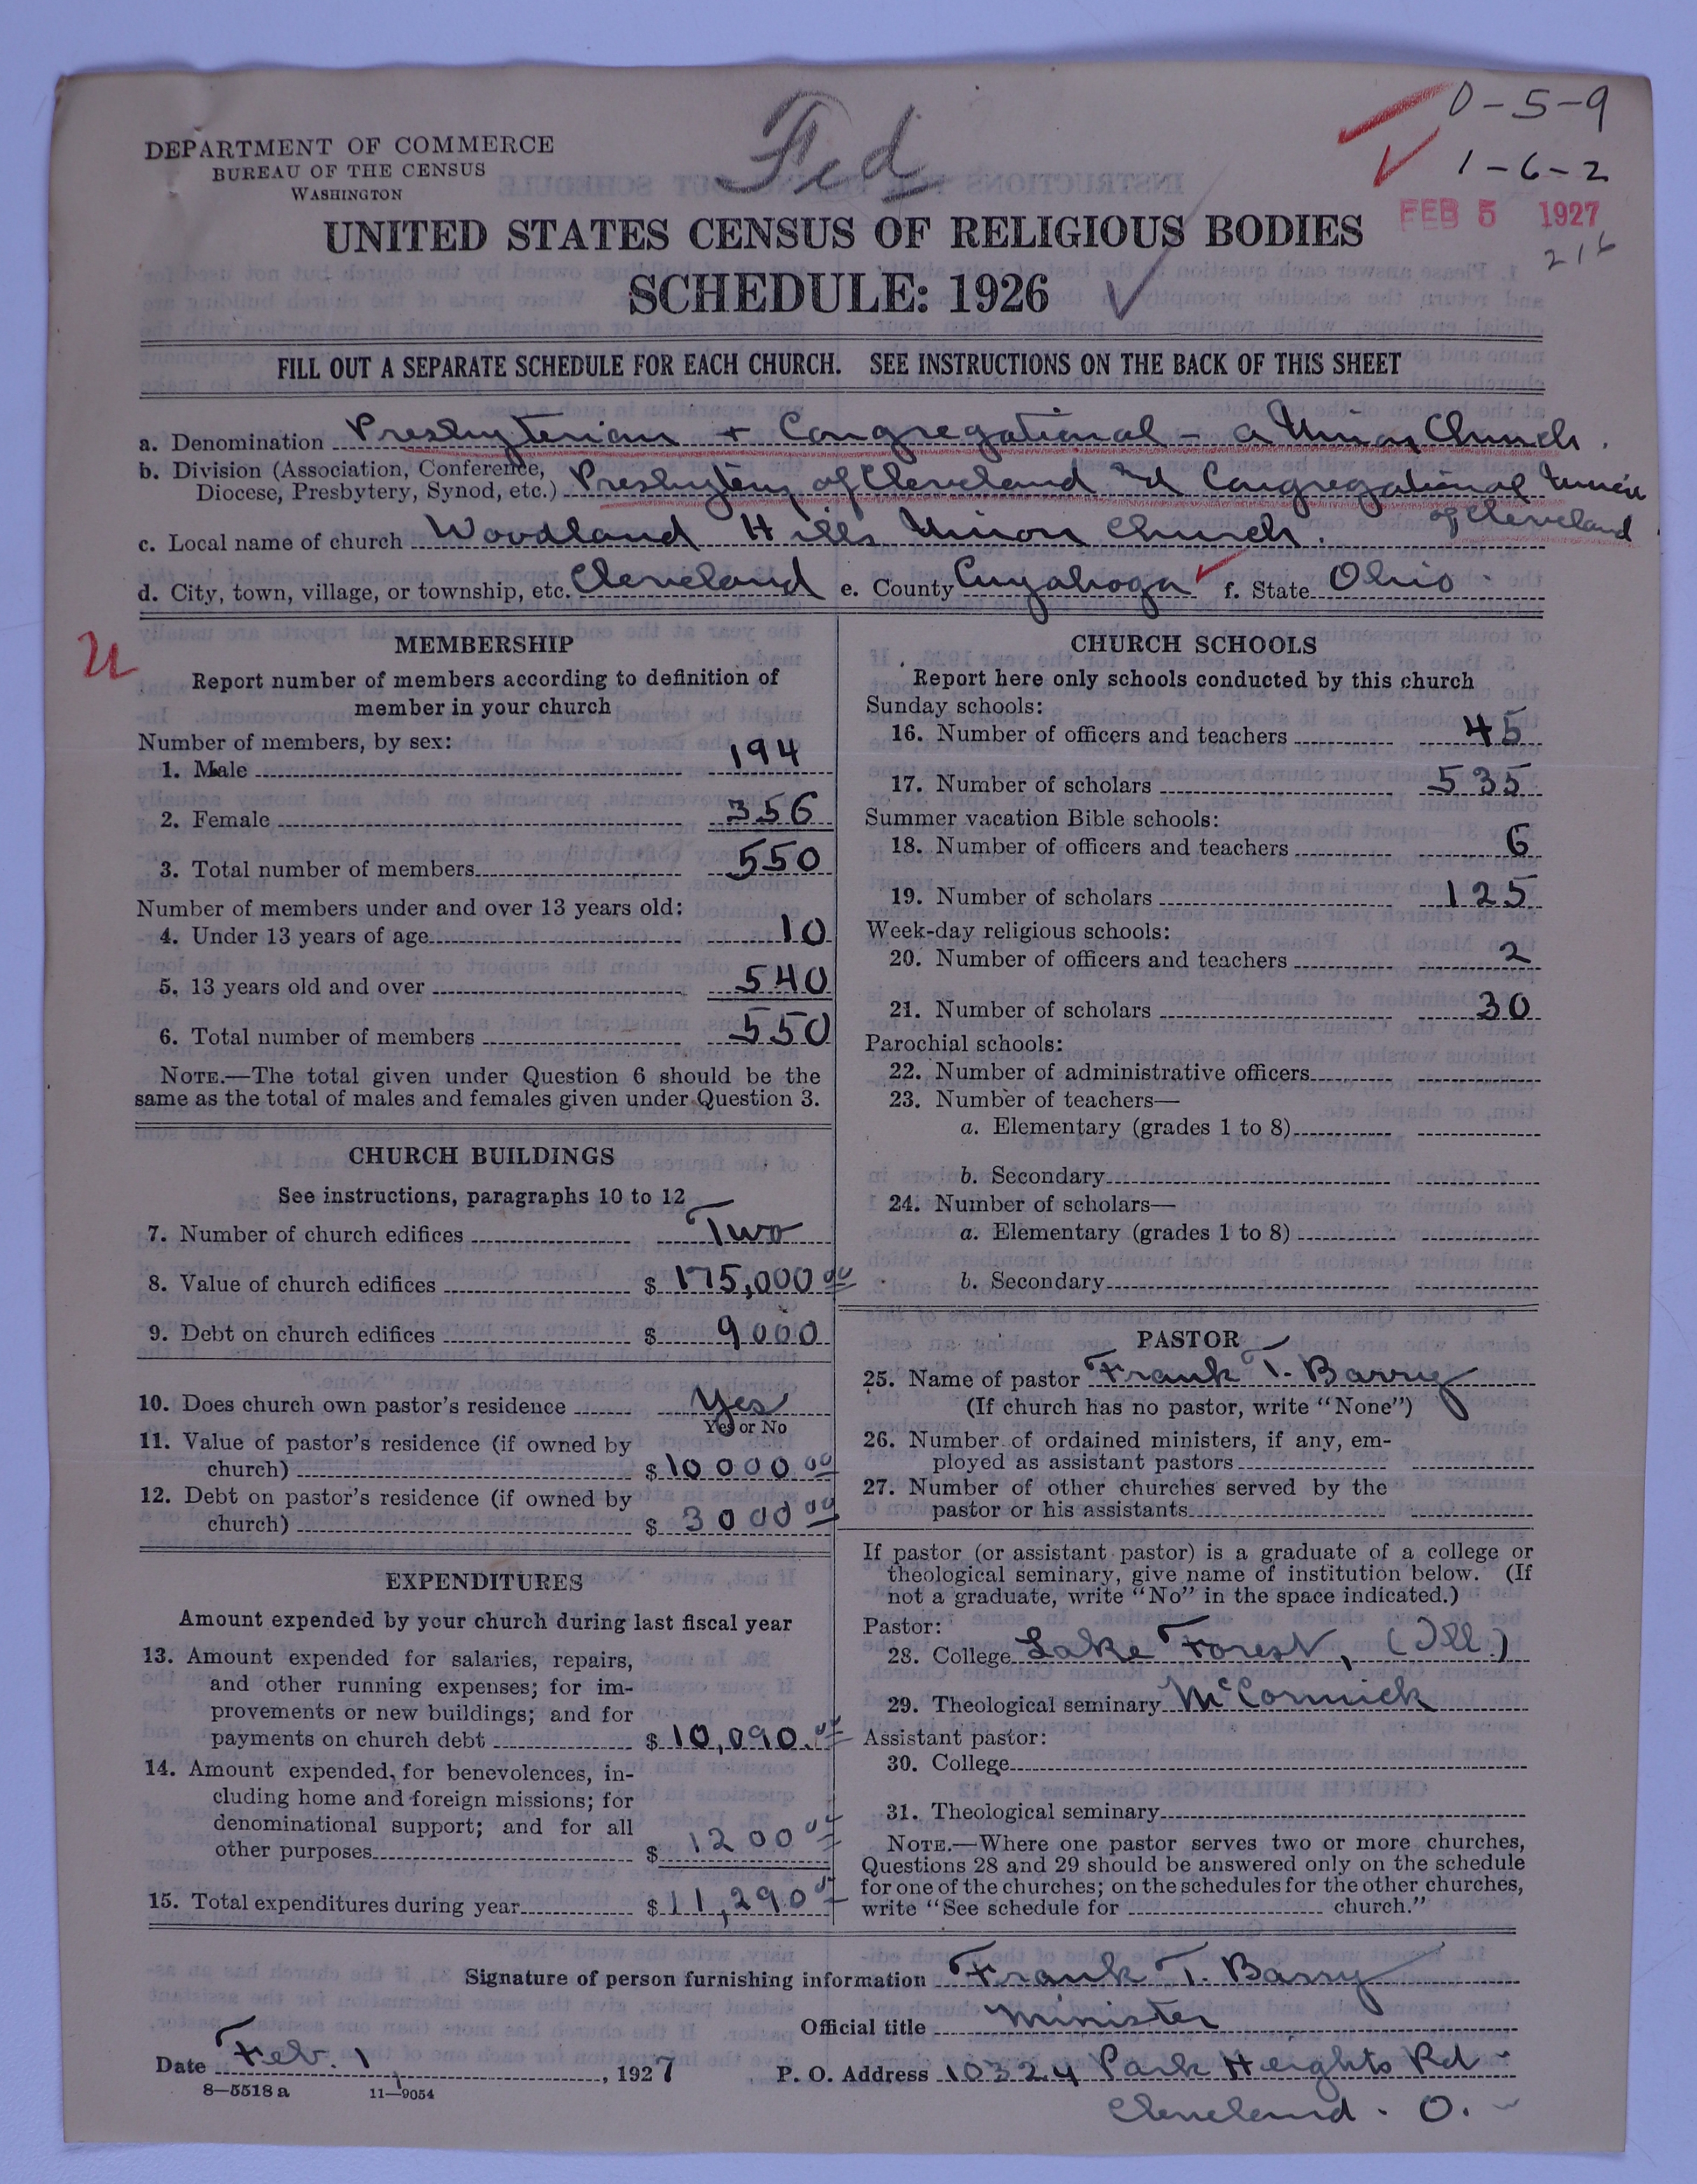 Fed
0-5-9
1-6-2
FEB 5 1927
216
DEPARTMENT OF COMMERCE
BUREAU OF THE CENSUS
WASHINGTON
UNITED STATES CENSUS OF RELIGIOUS BODIES
SCHEDULE: 1926
FILL OUT A SEPARATE SCHEDULE FOR EACH CHURCH. SEE INSTRUCTIONS ON THE BACK OF THIS SHEET
a. Denomination Presbyterian + Congregational - a Union Church.
b. Division (Association, Conference,
Diocese, Presbytery, Synod, etc.) Presbytery of Cleveland and Congregational Union
of Cleveland
c. Local name of church Woodland Hills Union Church.
d. City, town, village, or township, etc. Cleveland e. County Cuyahoga f. State Ohio
MEMBERSHIP
Report number of members according to definition of
member in your church
Number of members, by sex:
1. Male 194
2. Female 356
3. Total number of members 550
Number of members under and over 13 years old:
4. Under 13 years of age 10
5. 13 years old and over 540
6. Total number of members 550
NOTE.—The total given under Question 6 should be the
same as the total of males and females given under Question 3.
CHURCH BUILDINGS
See instructions, paragraphs 10 to 12
7. Number of church edifices Two
8. Value of church edifices $ 175,000 00
9. Debt on church edifices $ 9000
10. Does church own pastor's residence Yes
Yes or No
11. Value of pastor's residence (if owned by
church) $ 10000 00
12. Debt on pastor's residence (if owned by
church) $ 3000 00
EXPENDITURES
Amount expended by your church during last fiscal year
13. Amount expended for salaries, repairs,
and other running expenses; for im-
provements or new buildings; and for
payments on church debt $ 10,090.00
14. Amount expended for benevolences, in-
cluding home and foreign missions; for
denominational support; and for all
other purposes $ 1200 00
15. Total expenditures during year $ 11,290 00
CHURCH SCHOOLS
Report here only schools conducted by this church
Sunday schools:
16. Number of officers and teachers 45
17. Number of scholars 535
Summer vacation Bible schools:
18. Number of officers and teachers 6
19. Number of scholars 125
Week-day religious schools:
20. Number of officers and teachers 2
21. Number of scholars 30
Parochial schools:
22. Number of administrative officers
23. Number of teachers—
a. Elementary (grades 1 to 8)
b. Secondary
24. Number of scholars—
a. Elementary (grades 1 to 8)
b. Secondary
PASTOR
25. Name of pastor Frank T. Barry
(If church has no pastor, write "None")
26. Number of ordained ministers, if any, em-
ployed as assistant pastors
27. Number of other churches served by the
pastor or his assistants
If pastor (or assistant pastor) is a graduate of a college or
theological seminary, give name of institution below. (If
not a graduate, write "No" in the space indicated.)
Pastor:
28. College Lake Forest, (Ill.)
29. Theological seminary McCormick
Assistant pastor:
30. College
31. Theological seminary
NOTE.—Where one pastor serves two or more churches,
Questions 28 and 29 should be answered only on the schedule
for one of the churches; on the schedules for the other churches,
write "See schedule for church."
Signature of person furnishing information Frank T. Barry
Official title Minister
Date Feb. 1, 1927 P. O. Address 10324 Park Heights Rd
Cleveland. O.
8—5518 a 11—9054